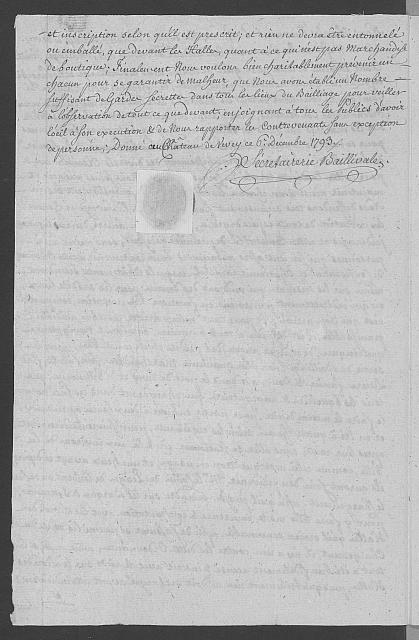 et inscription selon qu'il est prescrit; et rien ne devra être entonnelé
ou emballé, que devant les Halles, quant à ce qui n'est pas Marchandise
de boutique; Finalement Nous voulons bien charitablement prévenir un
chacun pour se garantir de malheur, que Nous avons établi un Nombre
suffisant de Gardes Secrettes dans tous les lieux du Bailliage pour veiller
à l'observation de tout ce que devant, enjoignant à tous les Publics d'avoir
l'œil à son execution & de Nous rapporter les Contrevenants sans exception
de personne; Donné au Château de Vevey ce 6e Décembre 1793.
Secretairerie Baillivale.